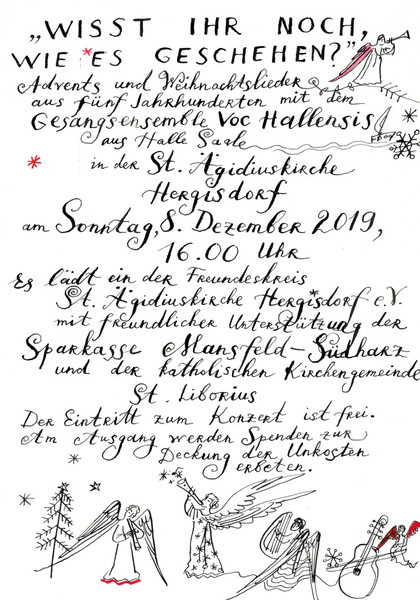 „WISST IHR NOCH,
WIE ES GESCHEHEN?"
Advents und Weihnachtslieder
aus fünf Jahrhunderten mit dem
Gesangsensemble Voc Hallensis
aus Halle Saale
in der St. Ägidiuskirche
Hergisdorf
am Sonntag, 8. Dezember 2019,
16.00 Uhr
Es lädt ein der Freundeskreis
St. Ägidiuskirche Hergisdorf e.V.
mit freundlicher Unterstützung der
Sparkasse Mansfeld-Südharz
und der katholischen Kirchengemeinde
St. Liborius
Der Eintritt zum Konzert ist frei.
Am Ausgang werden Spenden zur
Deckung der Unkosten
erbeten.